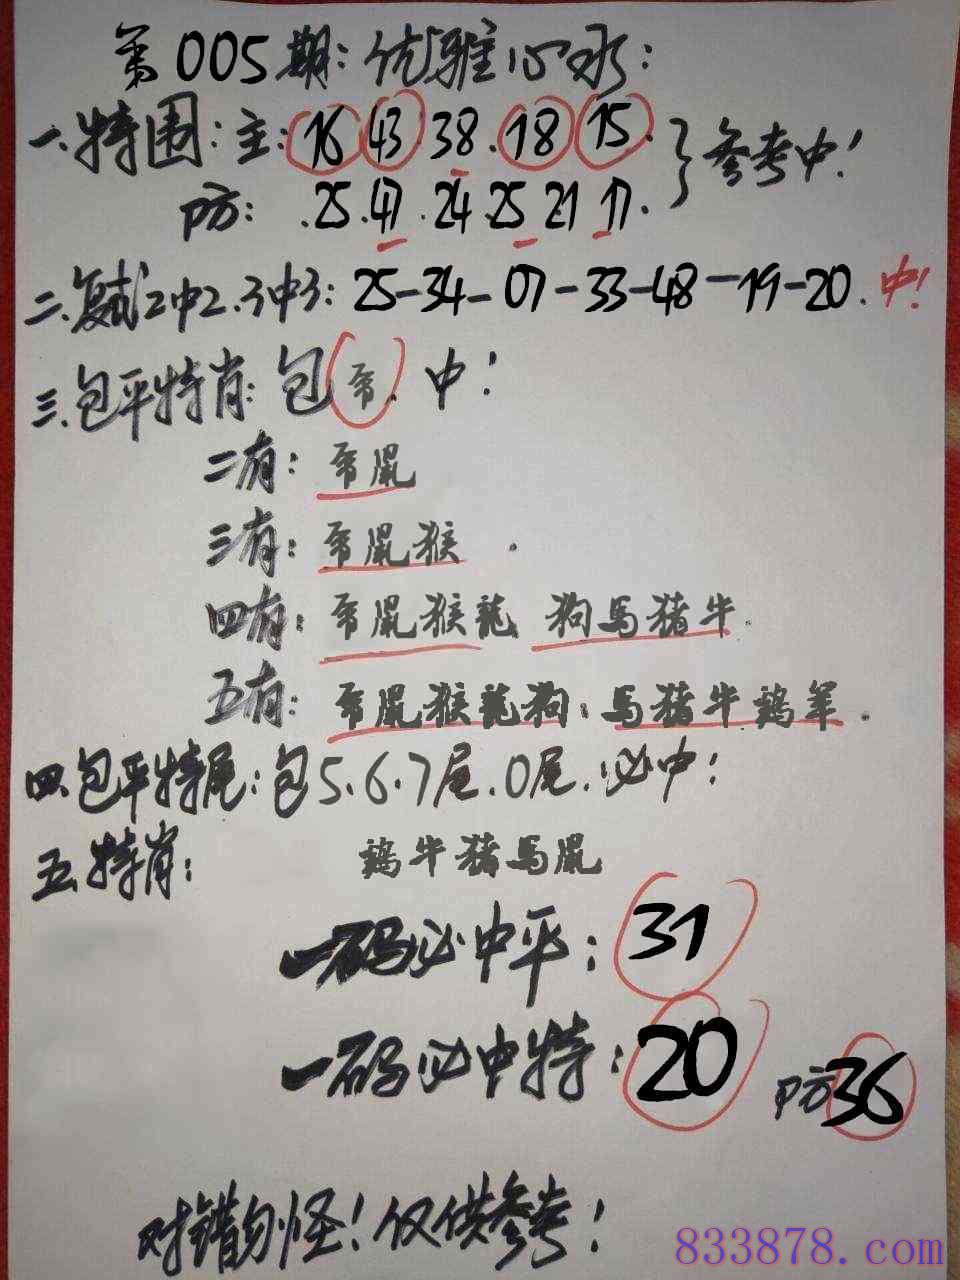 第005期:优雅心水:
一.特围:主:16.43.38.18.15.
防:.25.47.24.25 21 17.
}参考中!
二.复式2中2.3中3:25-34-07-33-48-19-20.中!
三.包平特肖:包帝.中!
二有:帝鼠
三有:帝鼠猴.
四有:帝鼠猴龍 狗馬猪牛.
五有:帝鼠猴龍狗.馬猪牛鷄羊.
四.包平特尾:包5.6.7尾.0尾.必中!
五.特肖:鷄牛猪馬鼠
一码必中平:31
一码必中特:20 防36
对错勿怪!仅供参考!
833878.com